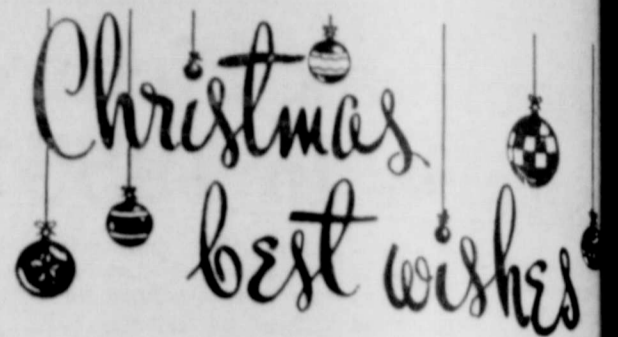 Christmas
best wishes